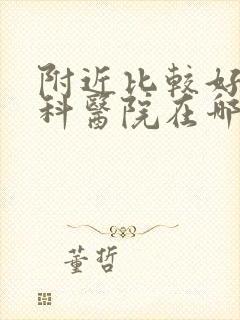 附近比較好
科醫院在哪
董哲